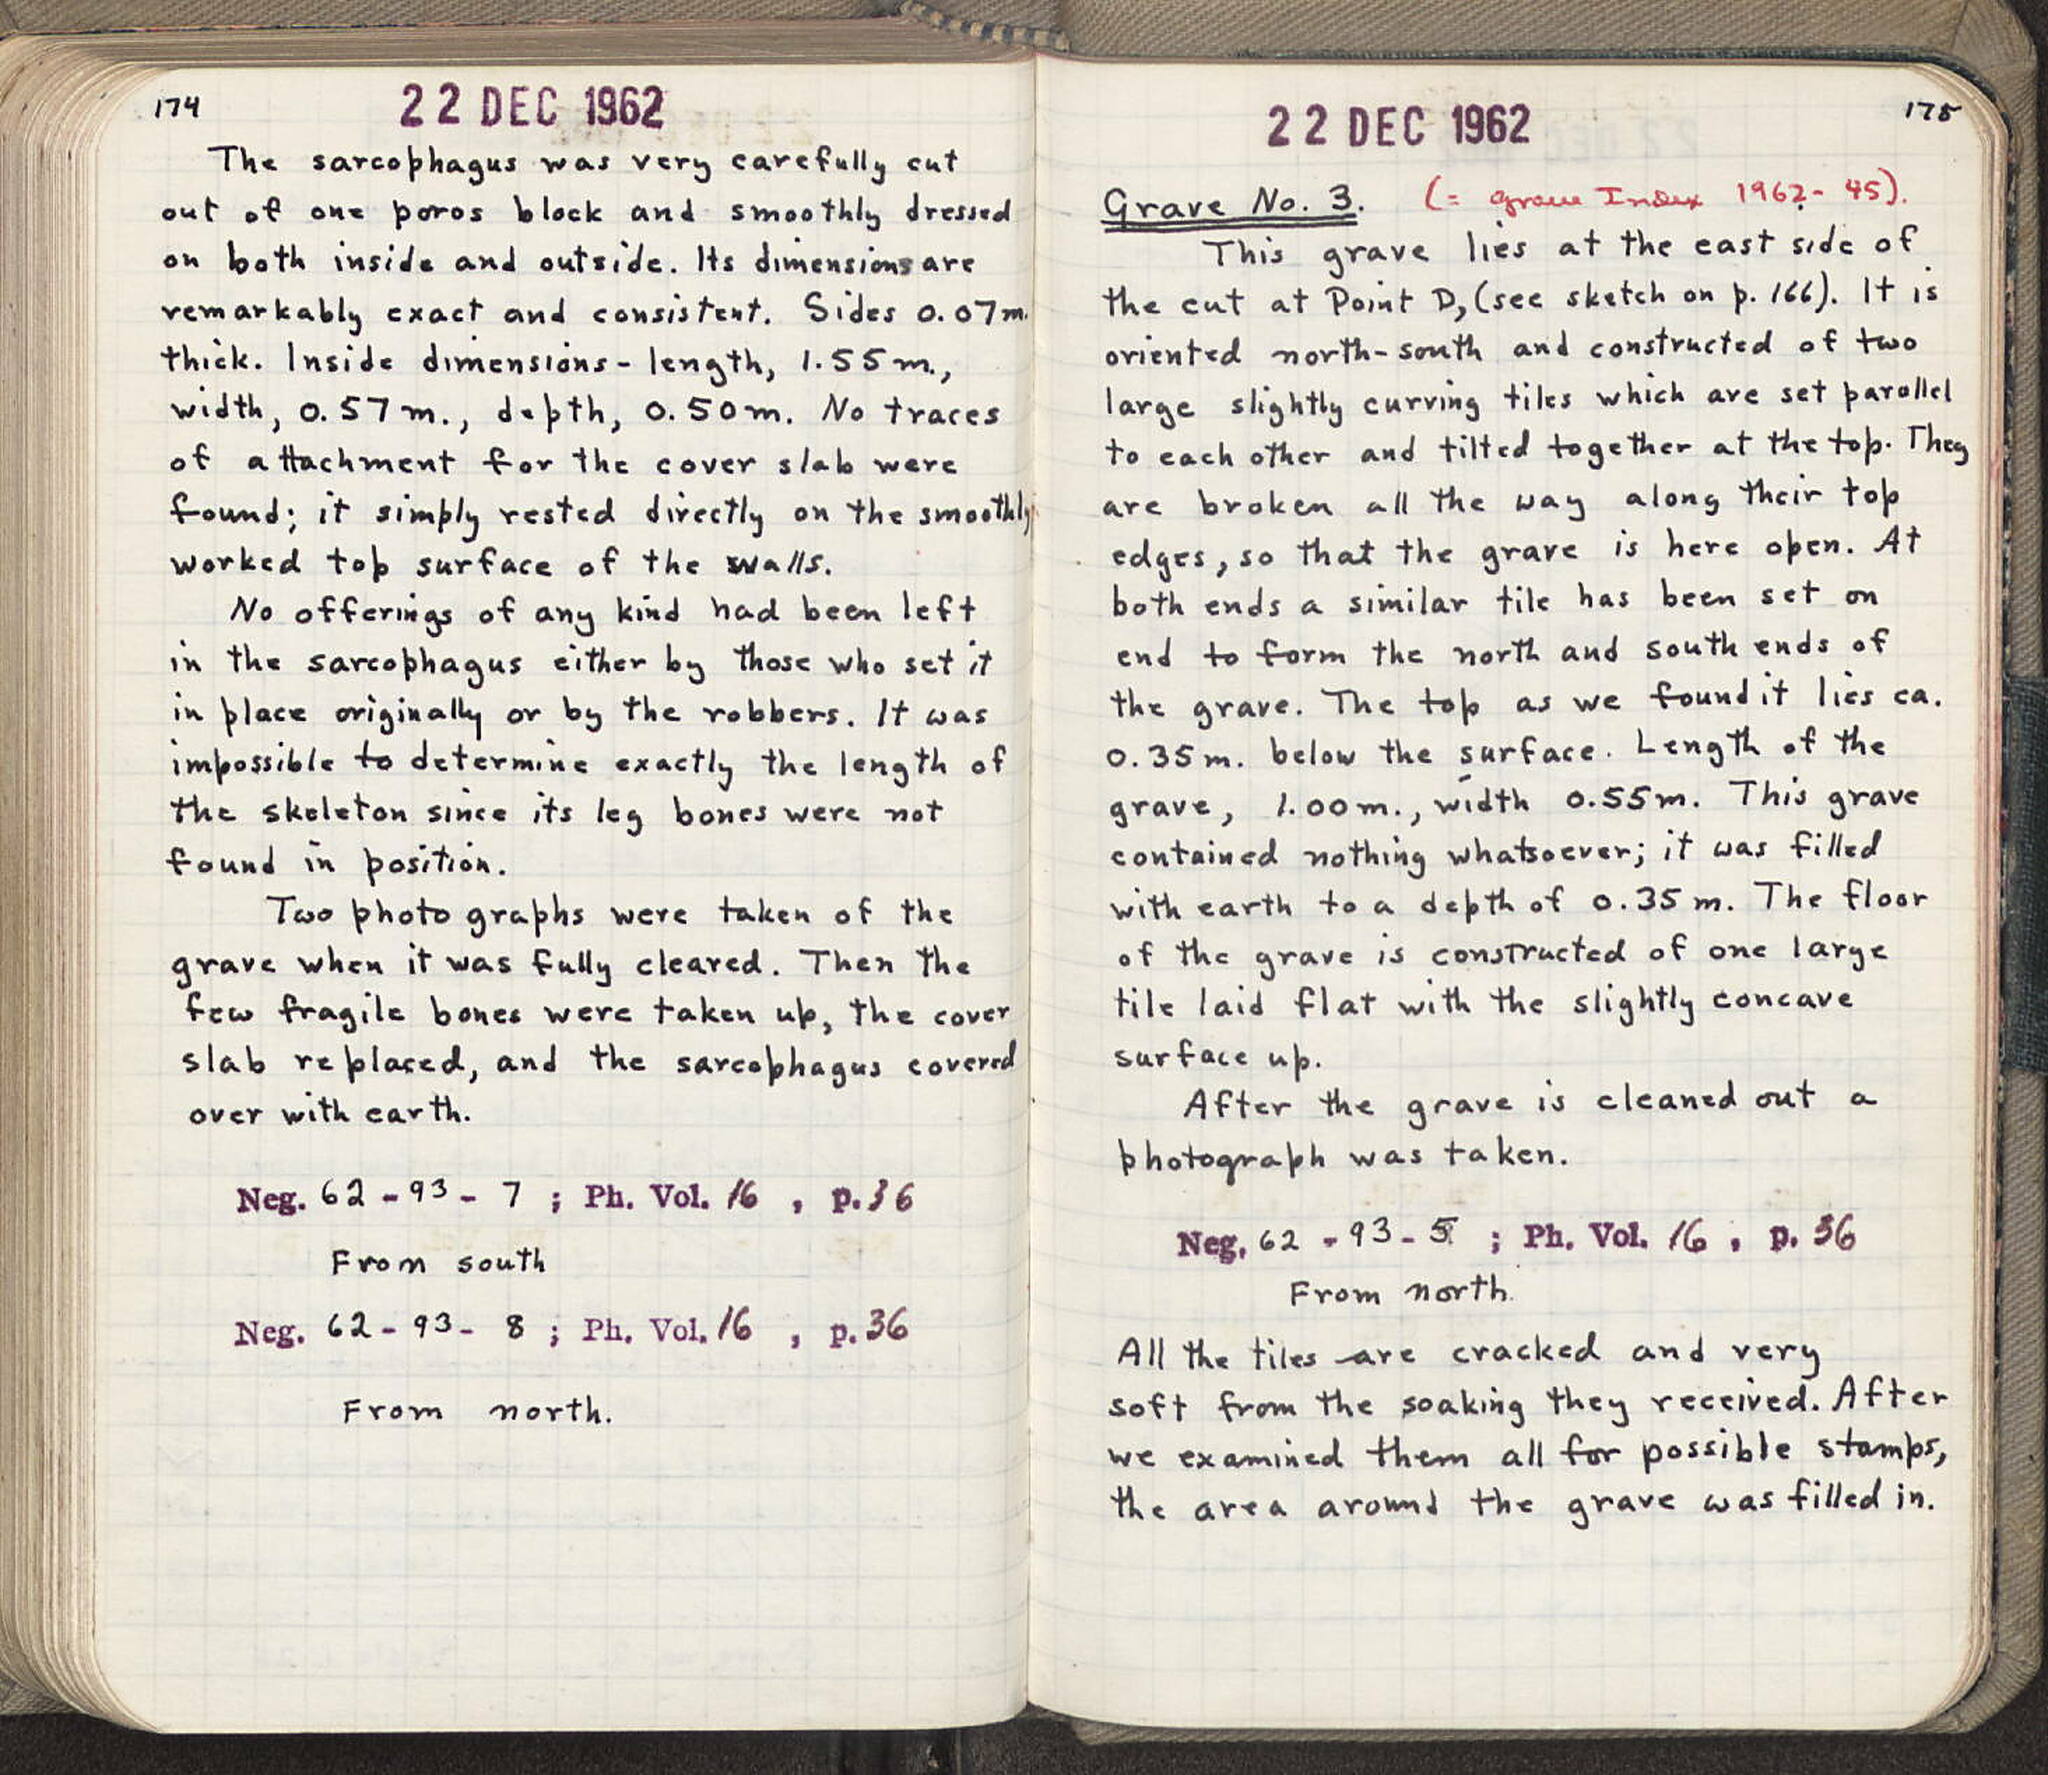 174
22 DEC 1962
The sarcophagus was very carefully cut
out of one poros block and smoothly dressed
on both inside and outside. Its dimensions are
remarkably exact and consistent. Sides 0.07m.
thick. Inside dimensions - length, 1.55m.,
width, 0.57m., depth, 0.50m. No traces
of attachment for the cover slab were
found; it simply rested directly on the smoothly
worked top surface of the walls.
No offerings of any kind had been left
in the sarcophagus either by those who set it
in place originally or by the robbers. It was
impossible to determine exactly the length of
the skeleton since its leg bones were not
found in position.
Two photographs were taken of the
grave when it was fully cleared. Then the
few fragile bones were taken up, the cover
slab replaced, and the sarcophagus covered
over with earth.
Neg. 62-93-7; Ph. Vol. 16, p. 36
From south
Neg. 62-93-8; Ph. Vol. 16, p. 36
From north.
175
22 DEC 1962
Grave No. 3. (= grave Index 1962-45).
This grave lies at the east side of
the cut at Point D, (see sketch on p. 166). It is
oriented north-south and constructed of two
large slightly curving tiles which are set parallel
to each other and tilted together at the top. They
are broken all the way along their top
edges, so that the grave is here open. At
both ends a similar tile has been set on
end to form the north and south ends of
the grave. The top as we found it lies ca.
0.35m. below the surface. Length of the
grave, 1.00m., width 0.55m. This grave
contained nothing whatsoever; it was filled
with earth to a depth of 0.35m. The floor
of the grave is constructed of one large
tile laid flat with the slightly concave
surface up.
After the grave is cleaned out a
photograph was taken.
Neg. 62-93-5; Ph. Vol. 16, p. 36
From north.
All the tiles are cracked and very
soft from the soaking they received. After
we examined them all for possible stamps,
the area around the grave was filled in.